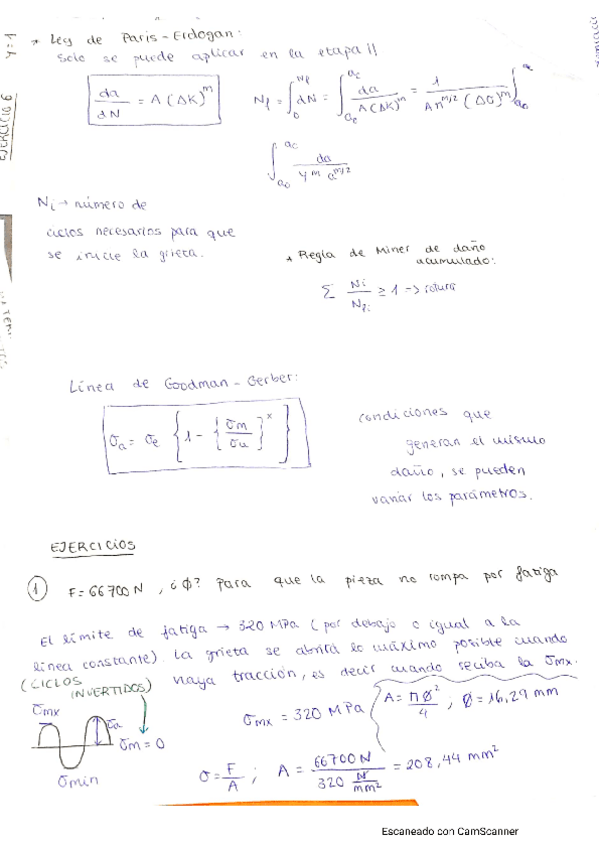 * Ley de Paris-Erdogan:
Solo se puede aplicar en la etapa II
da/dN = A (ΔK)^m
N_f = ∫_0^{N_f} dN = ∫_{a_0}^{a_c} da / A(ΔK)^m = 1 / A π^{m/2} (Δσ)^m ∫_{a_0}^{a_c}
∫_{a_0}^{a_c} da / Y^m a^{m/2}
N_i → número de
ciclos necesarios para que
se inicie la grieta.
* Regla de Miner de daño
acumulado:
Σ N_i / N_{fi} ≥ 1 → rotura
Línea de Goodman-Gerber:
σ_a = σ_e { 1 - { σ_m / σ_u }^x }
condiciones que
generan el mismo
daño, se pueden
variar los parámetros.
EJERCICIOS
① F = 66700 N , ¿Φ? Para que la pieza no rompa por fatiga
El límite de fatiga → 320 MPa (por debajo o igual a la
línea constante). La grieta se abrirá lo máximo posible cuando
haya tracción, es decir cuando reciba la σmx.
(CICLOS
INVERTIDOS)
σmx
σa
σm = 0
σmin
σmx = 320 MPa
A = πΦ²/4 ; Φ = 16,29 mm
σ = F/A ; A = 66700 N / 320 N/mm² = 208,44 mm²
EJERCICIO 6
Escaneado con CamScanner